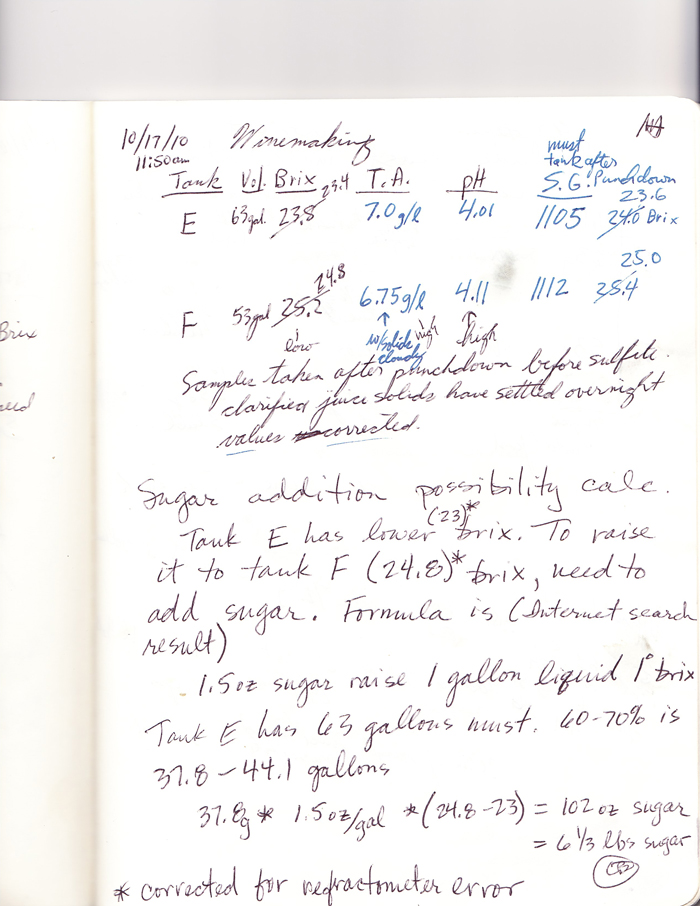 10/17/10 Winemaking
11:50am
must
tank after
Punchdown
Tank Vol. Brix T.A. pH S.G.
E 63gal 23.8 23.4 7.0g/l 4.01 1105 24.0 Brix 23.6
F 53gal 25.2 24.8 6.75g/l 4.11 1112 25.4 25.0
low ↑ w/solids, cloudy high ↑ high
Samples taken after punchdown before sulfite.
clarified juice solids have settled overnight
values corrected.
Sugar addition possibility calc.
Tank E has lower (23)* brix. To raise
it to tank F (24.8)* brix, need to
add sugar. Formula is (Internet search
result)
1.5oz sugar raise 1 gallon liquid 1° brix
Tank E has 63 gallons must. 60-70% is
37.8 - 44.1 gallons
37.8g * 1.5oz/gal * (24.8-23) = 102 oz sugar
= 6 1/3 lbs sugar
* corrected for refractometer error
Brix